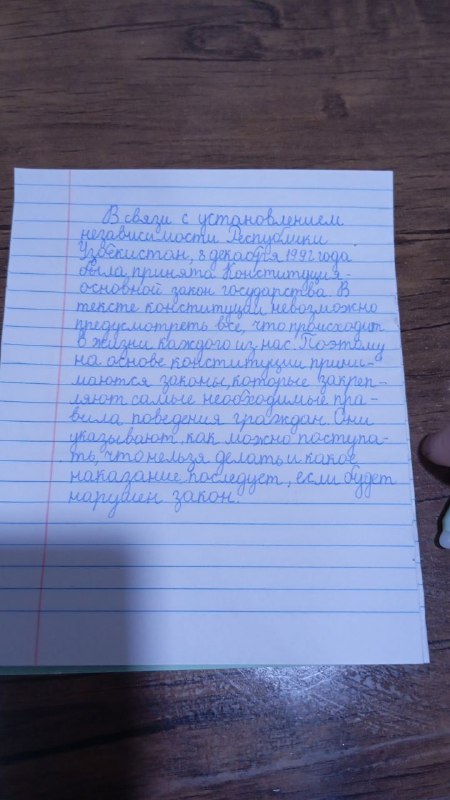 В связи с установлением
независимости Республики
Узбекистан, 8 декабря 1992 года
была принята Конституция-
основной закон государства. В
тексте конституции невозможно
предусмотреть все, что происходит
в жизни каждого из нас. Поэтому
на основе конституции прини-
маются законы, которые закреп-
ляют самые необходимые пра-
вила поведения граждан. Они
указывают, как можно поступа-
ть, что нельзя делать и какое
наказание последует, если будет
нарушен закон.